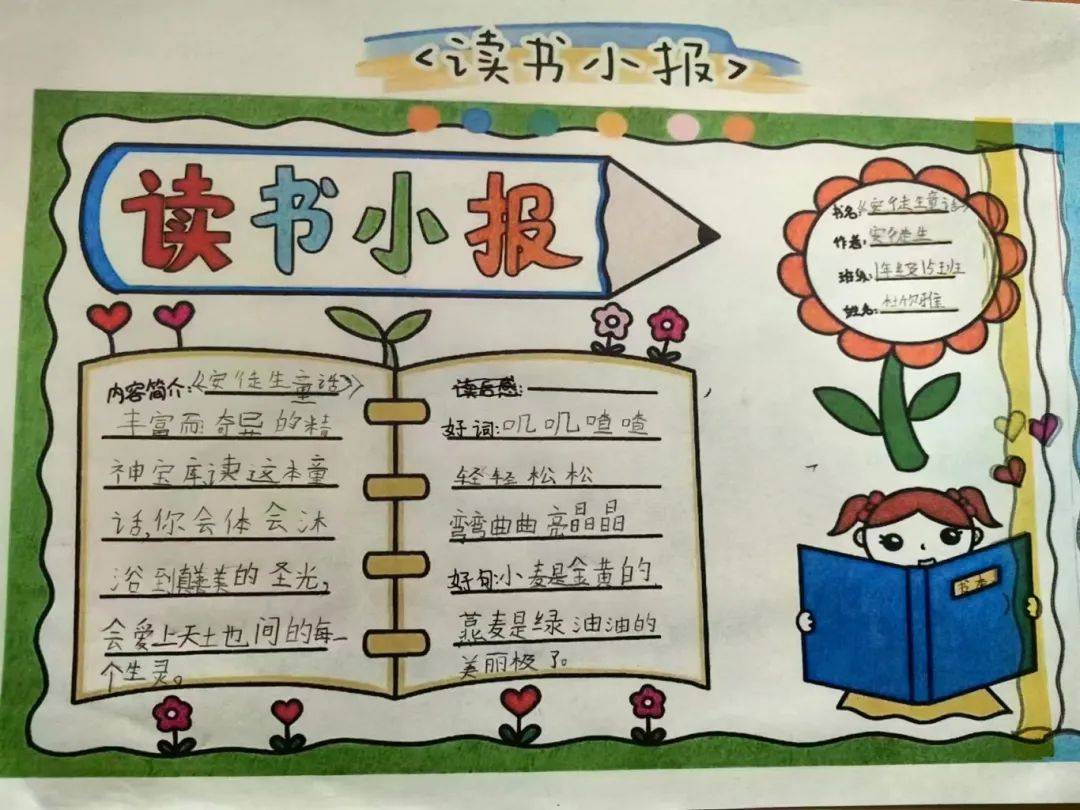 <读书小报>
读书小报
书名《安徒生童话》
作者:安徒生
班级:1年级15班
姓名:杜欣雅
内容简介:《安徒生童话》
丰富而奇异的精
神宝库,读这本童
话,你会体会沐
浴到真善美的圣光,
会爱上天土也间的每一
个生灵。
读后感:
好词:叽叽喳喳
轻轻松松
弯弯曲曲 亮晶晶
好句:小麦是金黄的
燕麦是绿油油的
美丽极了。
书本